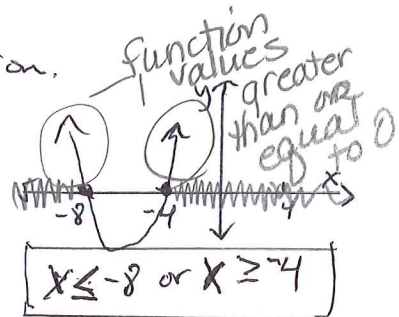 on.
function
values
greater
than or
equal
to 0
y
x
-8
-4
4
x ≤ -8 or x ≥ -4